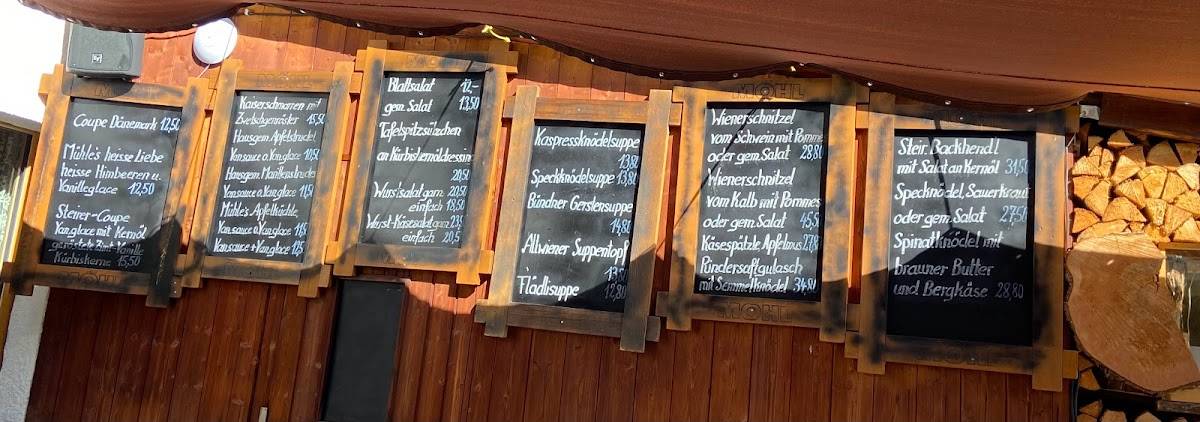 Coupe Dänemark 12,50
Mühle's heisse Liebe
heisse Himbeeren u.
Vanilleglace 12,50
Steirer-Coupe
Van.glace mit Kernöl
geröstete Zimt Vanille
Kürbiskerne 15,50
MÖHL
Kaiserschmarren mit
Zwetschgenröster 15,50
Hausgem. Apfelstrudel
Van.sauce o. Van.glace 10,50
Hausgem. Marillenstrudel
Van.sauce o. Van.glace 11,50
Mühle's Apfelküchle
Van.sauce o. Van.glace
Van.sauce + Van.glace
Blattsalat 12,-
gem. Salat 13,50
Tafelspitzsülzchen
an Kürbiskernöldressing
20,50
Wurstsalat garn. 20,50
einfach 18,50
Wurst-Käsesalat gar. 23,5
einfach 20,5
Kaspressknödelsuppe
13,80
Speckknödelsuppe 13,80
Bündner Gerstensuppe
14,80
Altwiener Suppentopf
13,50
Flädlisuppe 12,80
MÖHL
Wienerschnitzel
vom Schwein mit Pommes
oder gem. Salat 28,80
Wienerschnitzel
vom Kalb mit Pommes
oder gem. Salat 45,5
Käsespätzle, Apfelmus 27,8
Rindersaftgulasch
mit Semmelknödel 34,80
MÖHL
Steir. Backhendl
mit Salat an Kernöl 31,50
Specknödel, Sauerkraut
oder gem. Salat 27,50
Spinatknödel mit
brauner Butter
und Bergkäse 28,80